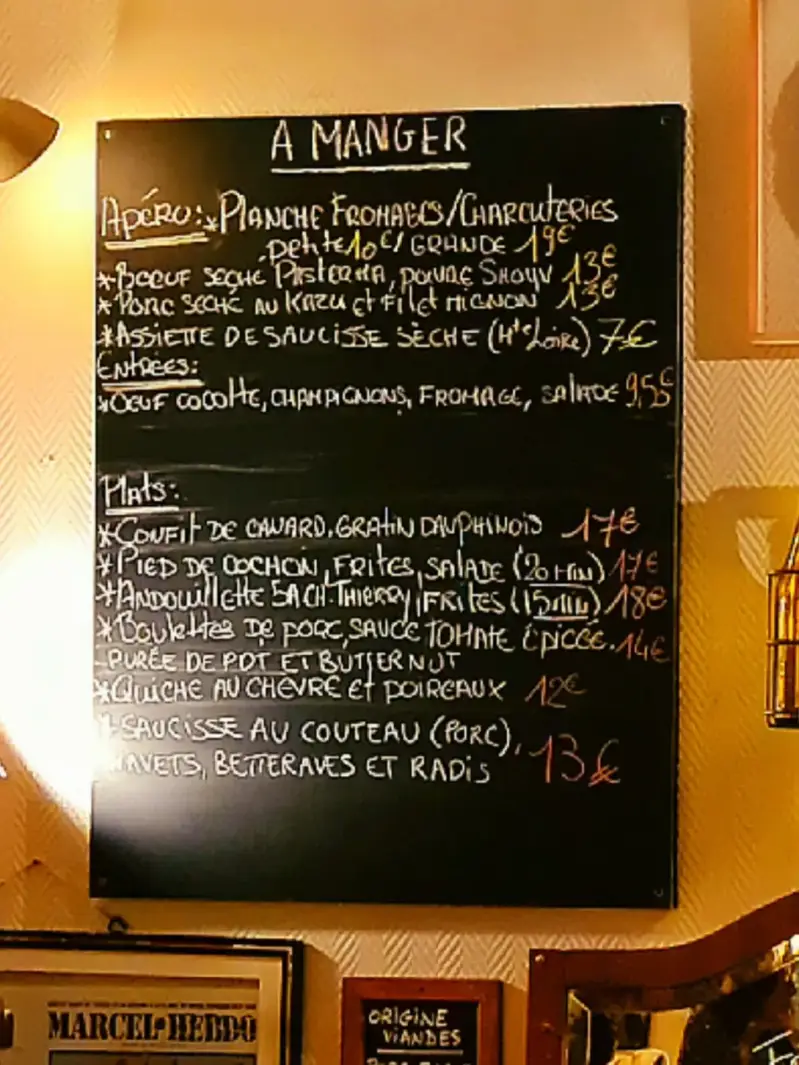 A MANGER
Apéro: *PLANCHE FROMAGES/CHARCUTERIES
petite 10€/ GRANDE 19€
*BOEUF SECHÉ PASTERMA, POIVRE SHOYU 13€
*PORC SECHÉ AU KAZU et Filet MIGNON 13€
*ASSIETTE DE SAUCISSE SÈCHE (Hte Loire) 7€
ENTRÉES:
*OEUF COCOTTE, CHAMPIGNONS, FROMAGE, SALADE 9,5€
Plats:
*CONFIT DE CANARD, GRATIN DAUPHINOIS 17€
*PIED DE COCHON, FRITES, SALADE (20 MIN) 17€
*ANDOUILLETTE 5A CH. THIERRY, FRITES (15 MIN) 18€
*Boulettes DE PORC, SAUCE TOMATE ÉPICÉE. 14€
-PURÉE DE PDT ET BUTTERNUT
*QUICHE AU CHÈVRE Et POIREAUX 12€
*SAUCISSE AU COUTEAU (PORC), 13€
NAVETS, BETTERAVES ET RADIS
MARCEL HEBDO
ORIGINE
VIANDES